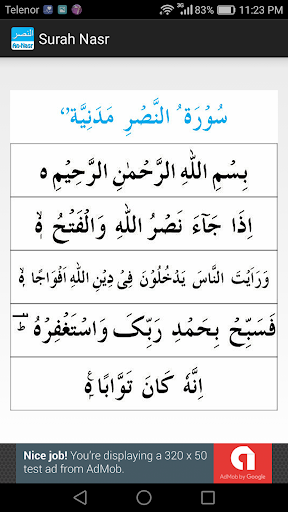 Telenor 3G 83% 11:23 PM
النصر
An-Nasr
Surah Nasr
سُوْرَةُ النَّصْرِ مَدَنِيَّةٌ
بِسْمِ اللّٰهِ الرَّحْمٰنِ الرَّحِيْمِ ه
اِذَا جَآءَ نَصْرُ اللّٰهِ وَالْفَتْحُ ۙ
وَرَاَيْتَ النَّاسَ يَدْخُلُوْنَ فِىْ دِيْنِ اللّٰهِ اَفْوَاجًا ۙ
فَسَبِّحْ بِحَمْدِ رَبِّكَ وَاسْتَغْفِرْهُ ؕ
اِنَّهٗ كَانَ تَوَّابًا ۧ
Nice job! You're displaying a 320 x 50
test ad from AdMob.
AdMob by Google